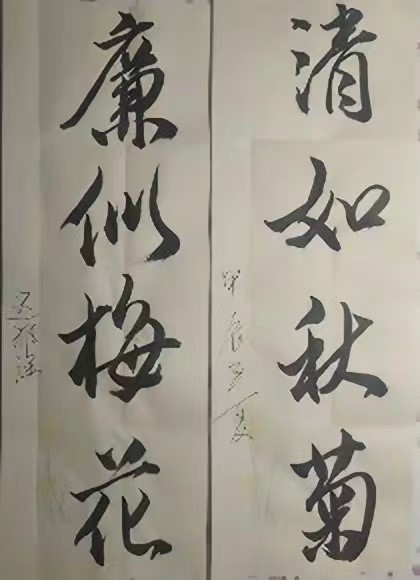 清如秋菊
甲辰夏
廉似梅花